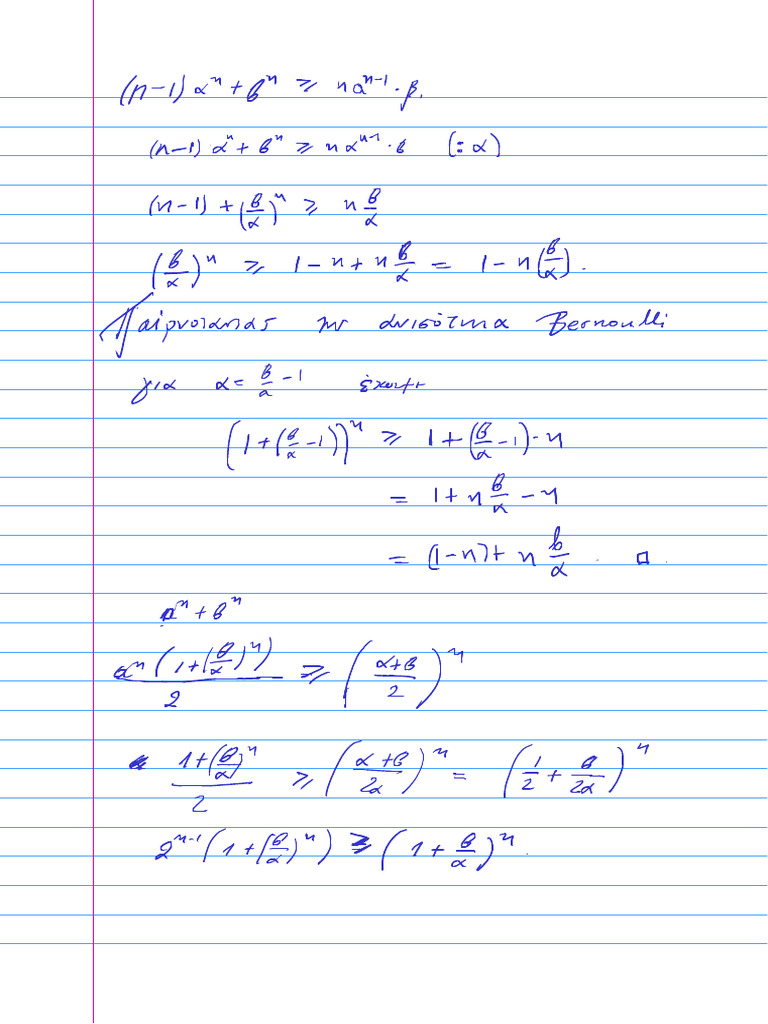 (n-1) α^n + β^n ≥ nα^{n-1}·β.
(n-1) α^n + β^n ≥ nα^{n-1}·β (:α)
(n-1) + (β/α)^n ≥ n β/α
(β/α)^n ≥ 1-n+n β/α = 1-n(β/α).
Παίρνοντας την ανισότητα Bernoulli
για α = β/α -1 έχουμε
(1+(β/α -1))^n ≥ 1+(β/α -1)·n
= 1+n β/α -n
= (1-n)+ n β/α . □.
α^n + β^n
α^n (1+(β/α)^n) / 2 ≥ ((α+β)/2)^n
(1+(β/α)^n) / 2 ≥ ((α+β)/2α)^n = (1/2 + β/2α)^n
2^{n-1} (1+(β/α)^n) ≥ (1+ β/α)^n.